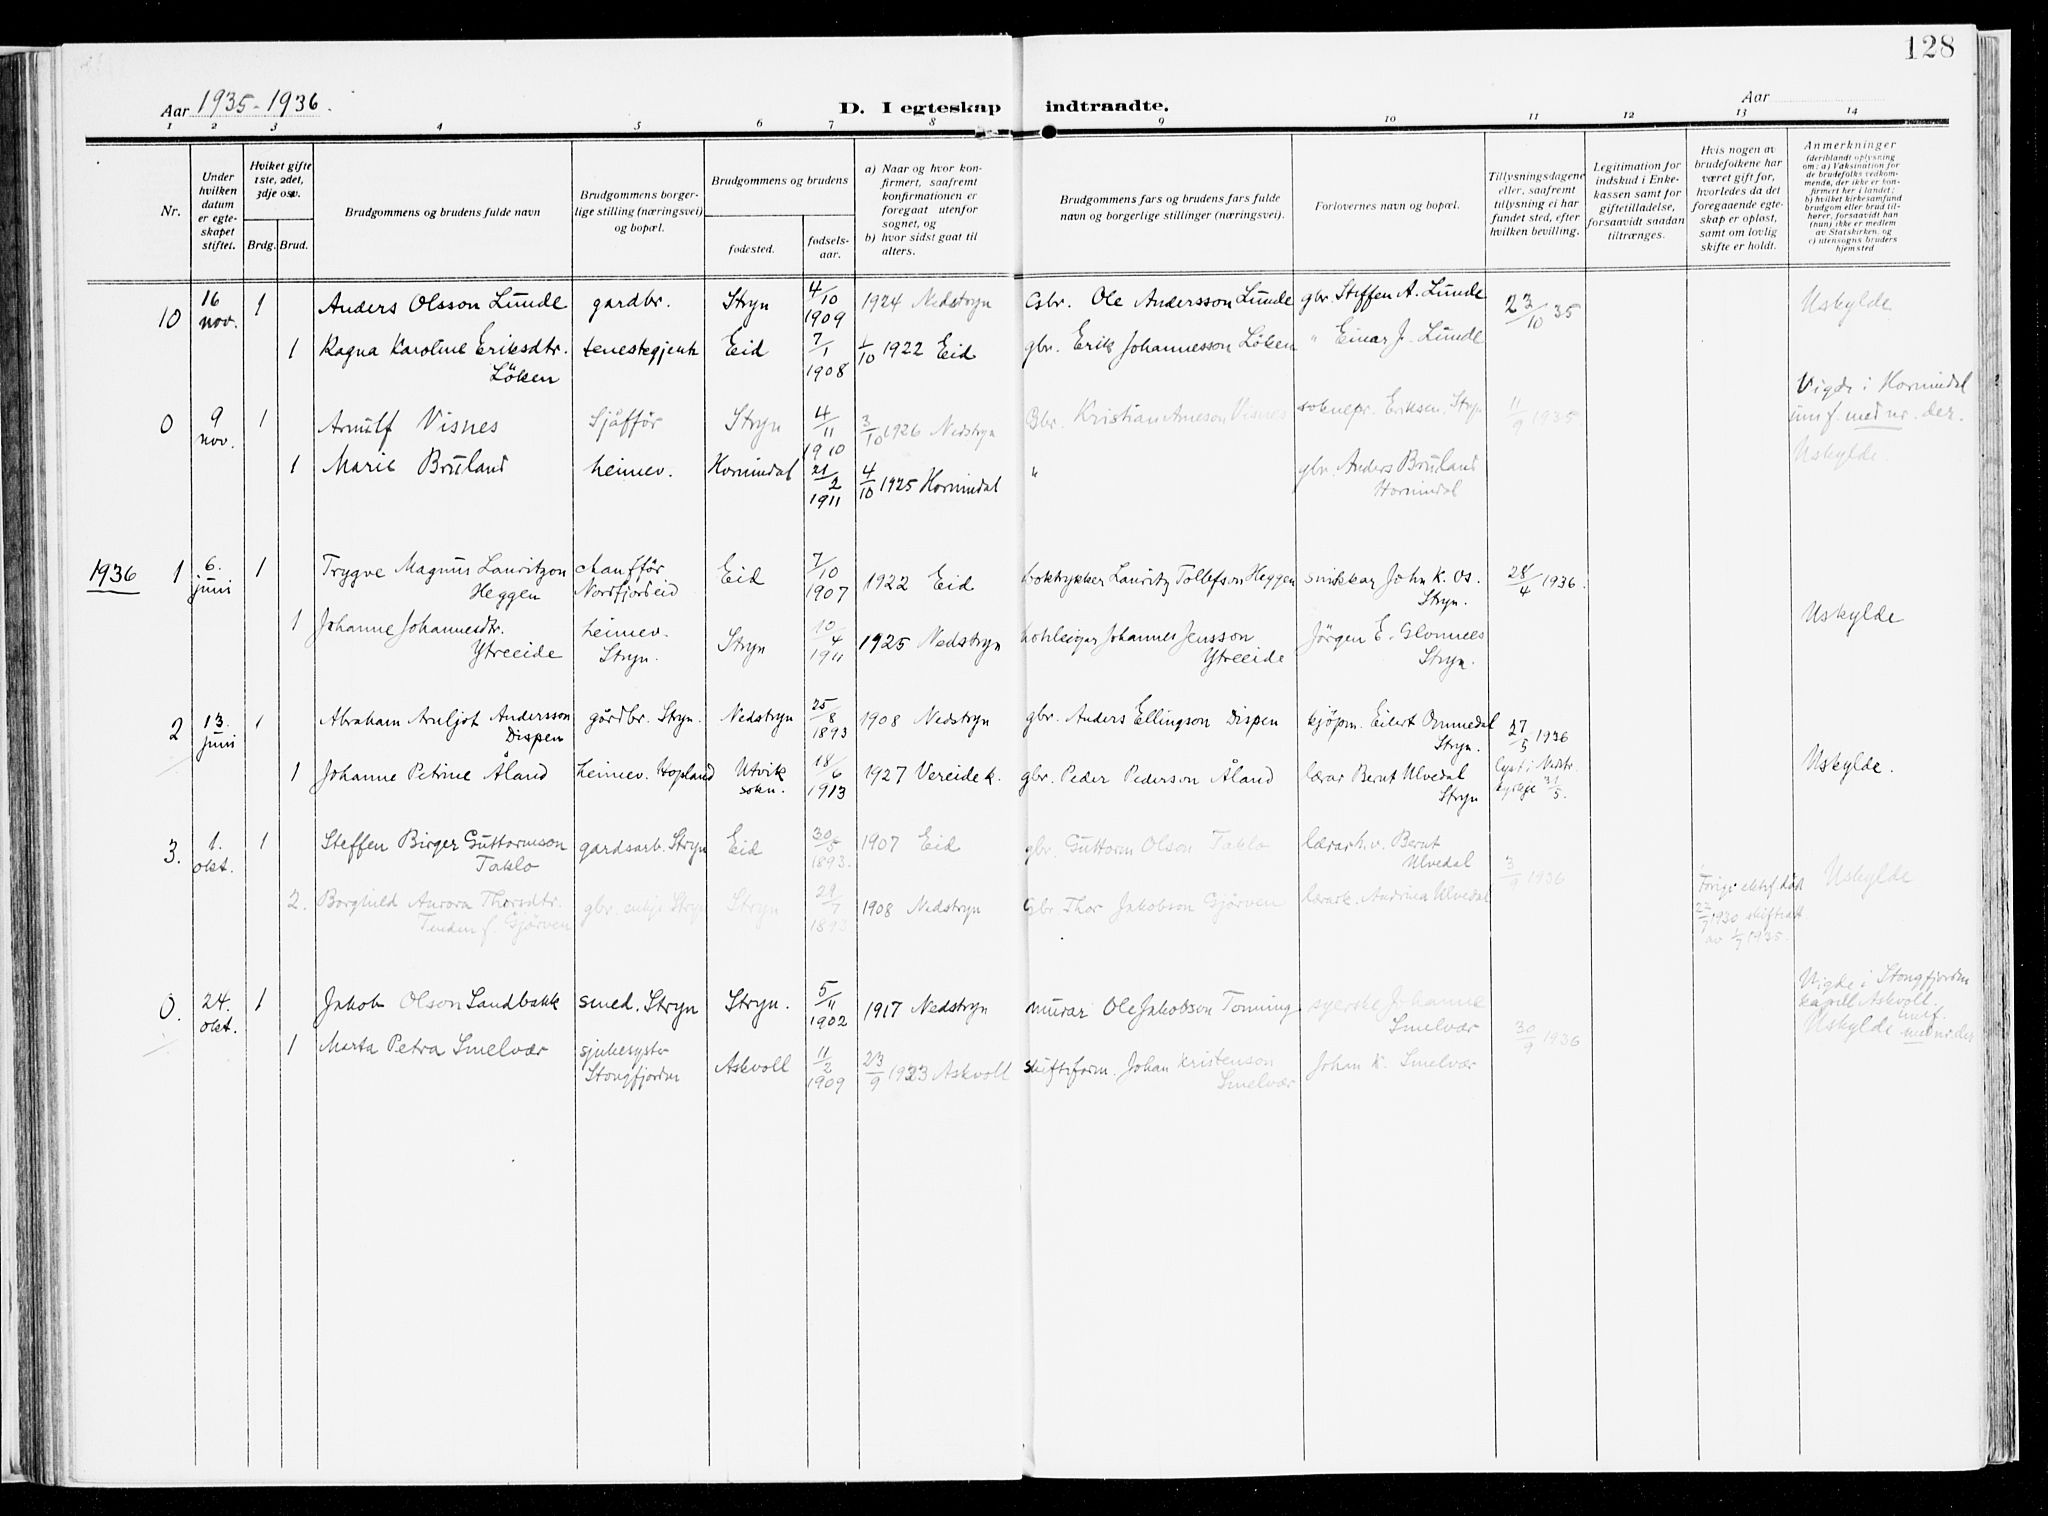 128
Aar 1935-1936.
D. I egteskap indtraadte.
Aar
1 2 3 4 5 6 7 8 9 10 11 12 13 14
Nr.
Under hvilken datum er egteskapet stiftet.
Hvilket gifte 1ste, 2det, 3dje osv.
Brdg. Brud.
Brudgommens og brudens fulde navn
Brudgommens borgerlige stilling (næringsvei) og bopæl.
Brudgommens og brudens
fødested.
fødselsaar.
a) Naar og hvor konfirmert, saafremt konfirmationen er foregaat utenfor sognet, og
b) hvor sidst gaat til alters.
Brudgommens fars og brudens fars fulde navn og borgerlige stillinger (næringsvei).
Forlovernes navn og bopæl.
Tillysningsdagene eller, saafremt tillysning ei har fundet sted, efter hvilken bevilling.
Legitimation for indskud i Enkekassen samt for giftetilladelse, forsaavidt saadan tiltrænges.
Hvis nogen av brudefolkene har været gift før, hvorledes da det foregaaende egteskap er opløst, samt om lovlig skifte er holdt.
Anmerkninger
(deriblandt oplysning om: a) Vaksination for de brudefolks vedkommende, der ikke er konfirmert her i landet; b) hvilket kirkesamfund brudgom eller brud tilhører, forsaavidt han (hun) ikke er medlem av Statskirken, og c) utensogns bruders hjemsted
10 16 nov. 1 Anders Olsson Lunde gardbr. Stryn 4/10 1909 1924 Nedstryn Gbr. Ole Andersson Lunde gbr. Steffen A. Lunde 23/10 35 Uskylde
1 Ragna Karoline Eriksdtr. Løken tenestegjente Eid 7/1 1908 1/10 1922 Eid gbr. Erik Johannesson Løken " Einar J. Lunde
0 9 nov. 1 Arnulf Visnes Sjåffør Stryn 4/11 1910 3/10 1926 Nedstryn Gbr. Kristian Arneson Visnes soknepr. Eriksen, Stryn 11/9 1935. Vigde i Hornindal
med nr. der.
1 Marie Bruland heimev. Hornindal 21/2 1911 4/10 1925 Hornindal " gbr Anders Bruland Hornindal Uskylde.
1936 1 6. juni 1 Trygve Magnus Lauritzon Heggen chauffør Nordfjordeid Eid 7/10 1907 1922 Eid boktrykker Lauritz Tollefson Heggen snikkar John K. Os. Stryn. 28/4 1936.
1 Johanne Johannesdtr. Ytreeide heimev. Stryn. Stryn 10/4 1911 1925 Nedstryn Johannes Jensson Ytreeide Jörgen E. Glomnes Stryn. Uskylde
2 13. juni 1 Abraham Arnljot Andersson Dispen gårdbr. Stryn. Nedstryn 25/8 1893 1908 Nedstryn gbr. Anders Ellingson Dispen kjöpm. Eilert Ommedal Stryn. 27/5 1936
1 Johanne Petrine Åland heimev. Hopland Utvik sokn. 18/6 1913 1927 Vereide k. gbr. Peder Pederson Åland lærar Bernt Ulvedal Stryn lyst i Nedstr. kyrkje 31/5. Uskylde.
3. 1. okt. 1 Steffen Birger Guttormson Taklo gardsarb. Stryn Eid 30/5 1893. 1907 Eid gbr. Guttorm Olson Taklo lærar h.v. Bernt Ulvedal 3/9 1936 Uskylde
2. Borghild Aurora Thorsdtr. Tenden f. Gjörven gbr. enkje Stryn Stryn 29/7 1893 1908 Nedstryn Gbr. Thor Jakobson Gjörven lærark. Andrina Ulvedal Forige ektef. død 22/7 1930 skifteatt av 1/7 1935.
0. 24. okt. 1 Jakob Olson Sandbakk smed. Stryn Stryn. 5/11 1902 1917 Nedstryn murar Ole Jakobson Tonning syerske Johanne Smelvær 30/9 1936 Vigde i Stongfjorden kapell Askvoll.
Uskylde med nr der
1 Marta Petra Smelvær sjukesyster Stongfjorden Askvoll 11/2 1909 23/9 1923 Askvoll skiftsform. Johan Kristenson Smelvær Johan K. Smelvær